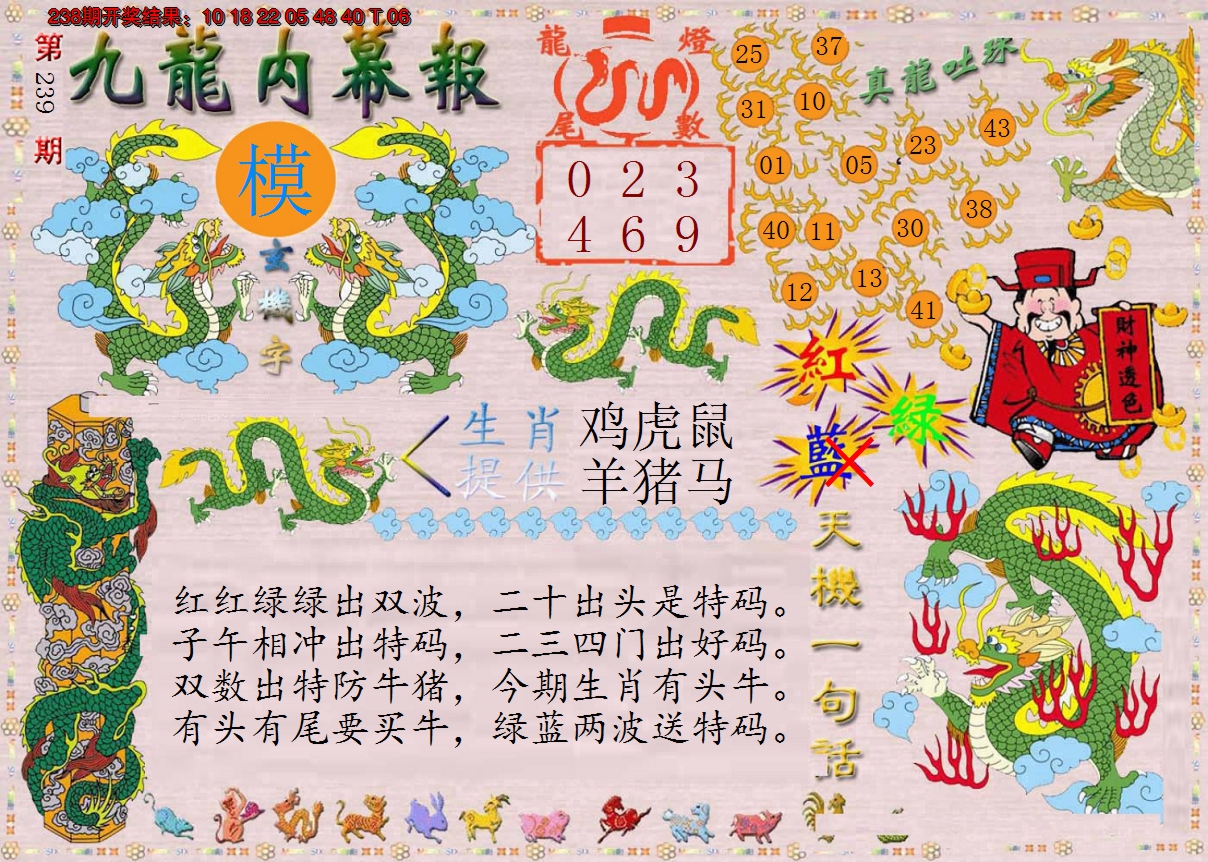 238期开奖结果：10 18 22 05 48 40 T 06
第239期
九龍内幕報
模
玄機字
龍燈
尾數
0 2 3
4 6 9
真龍吐珠
25 37
31 10
01 05 23 43
40 11 30 38
12 13 41
紅
綠
藍
財神透色
生肖 鸡虎鼠
提供 羊猪马
天機一句话
红红绿绿出双波，二十出头是特码。
子午相冲出特码，二三四门出好码。
双数出特防牛猪，今期生肖有头牛。
有头有尾要买牛，绿蓝两波送特码。